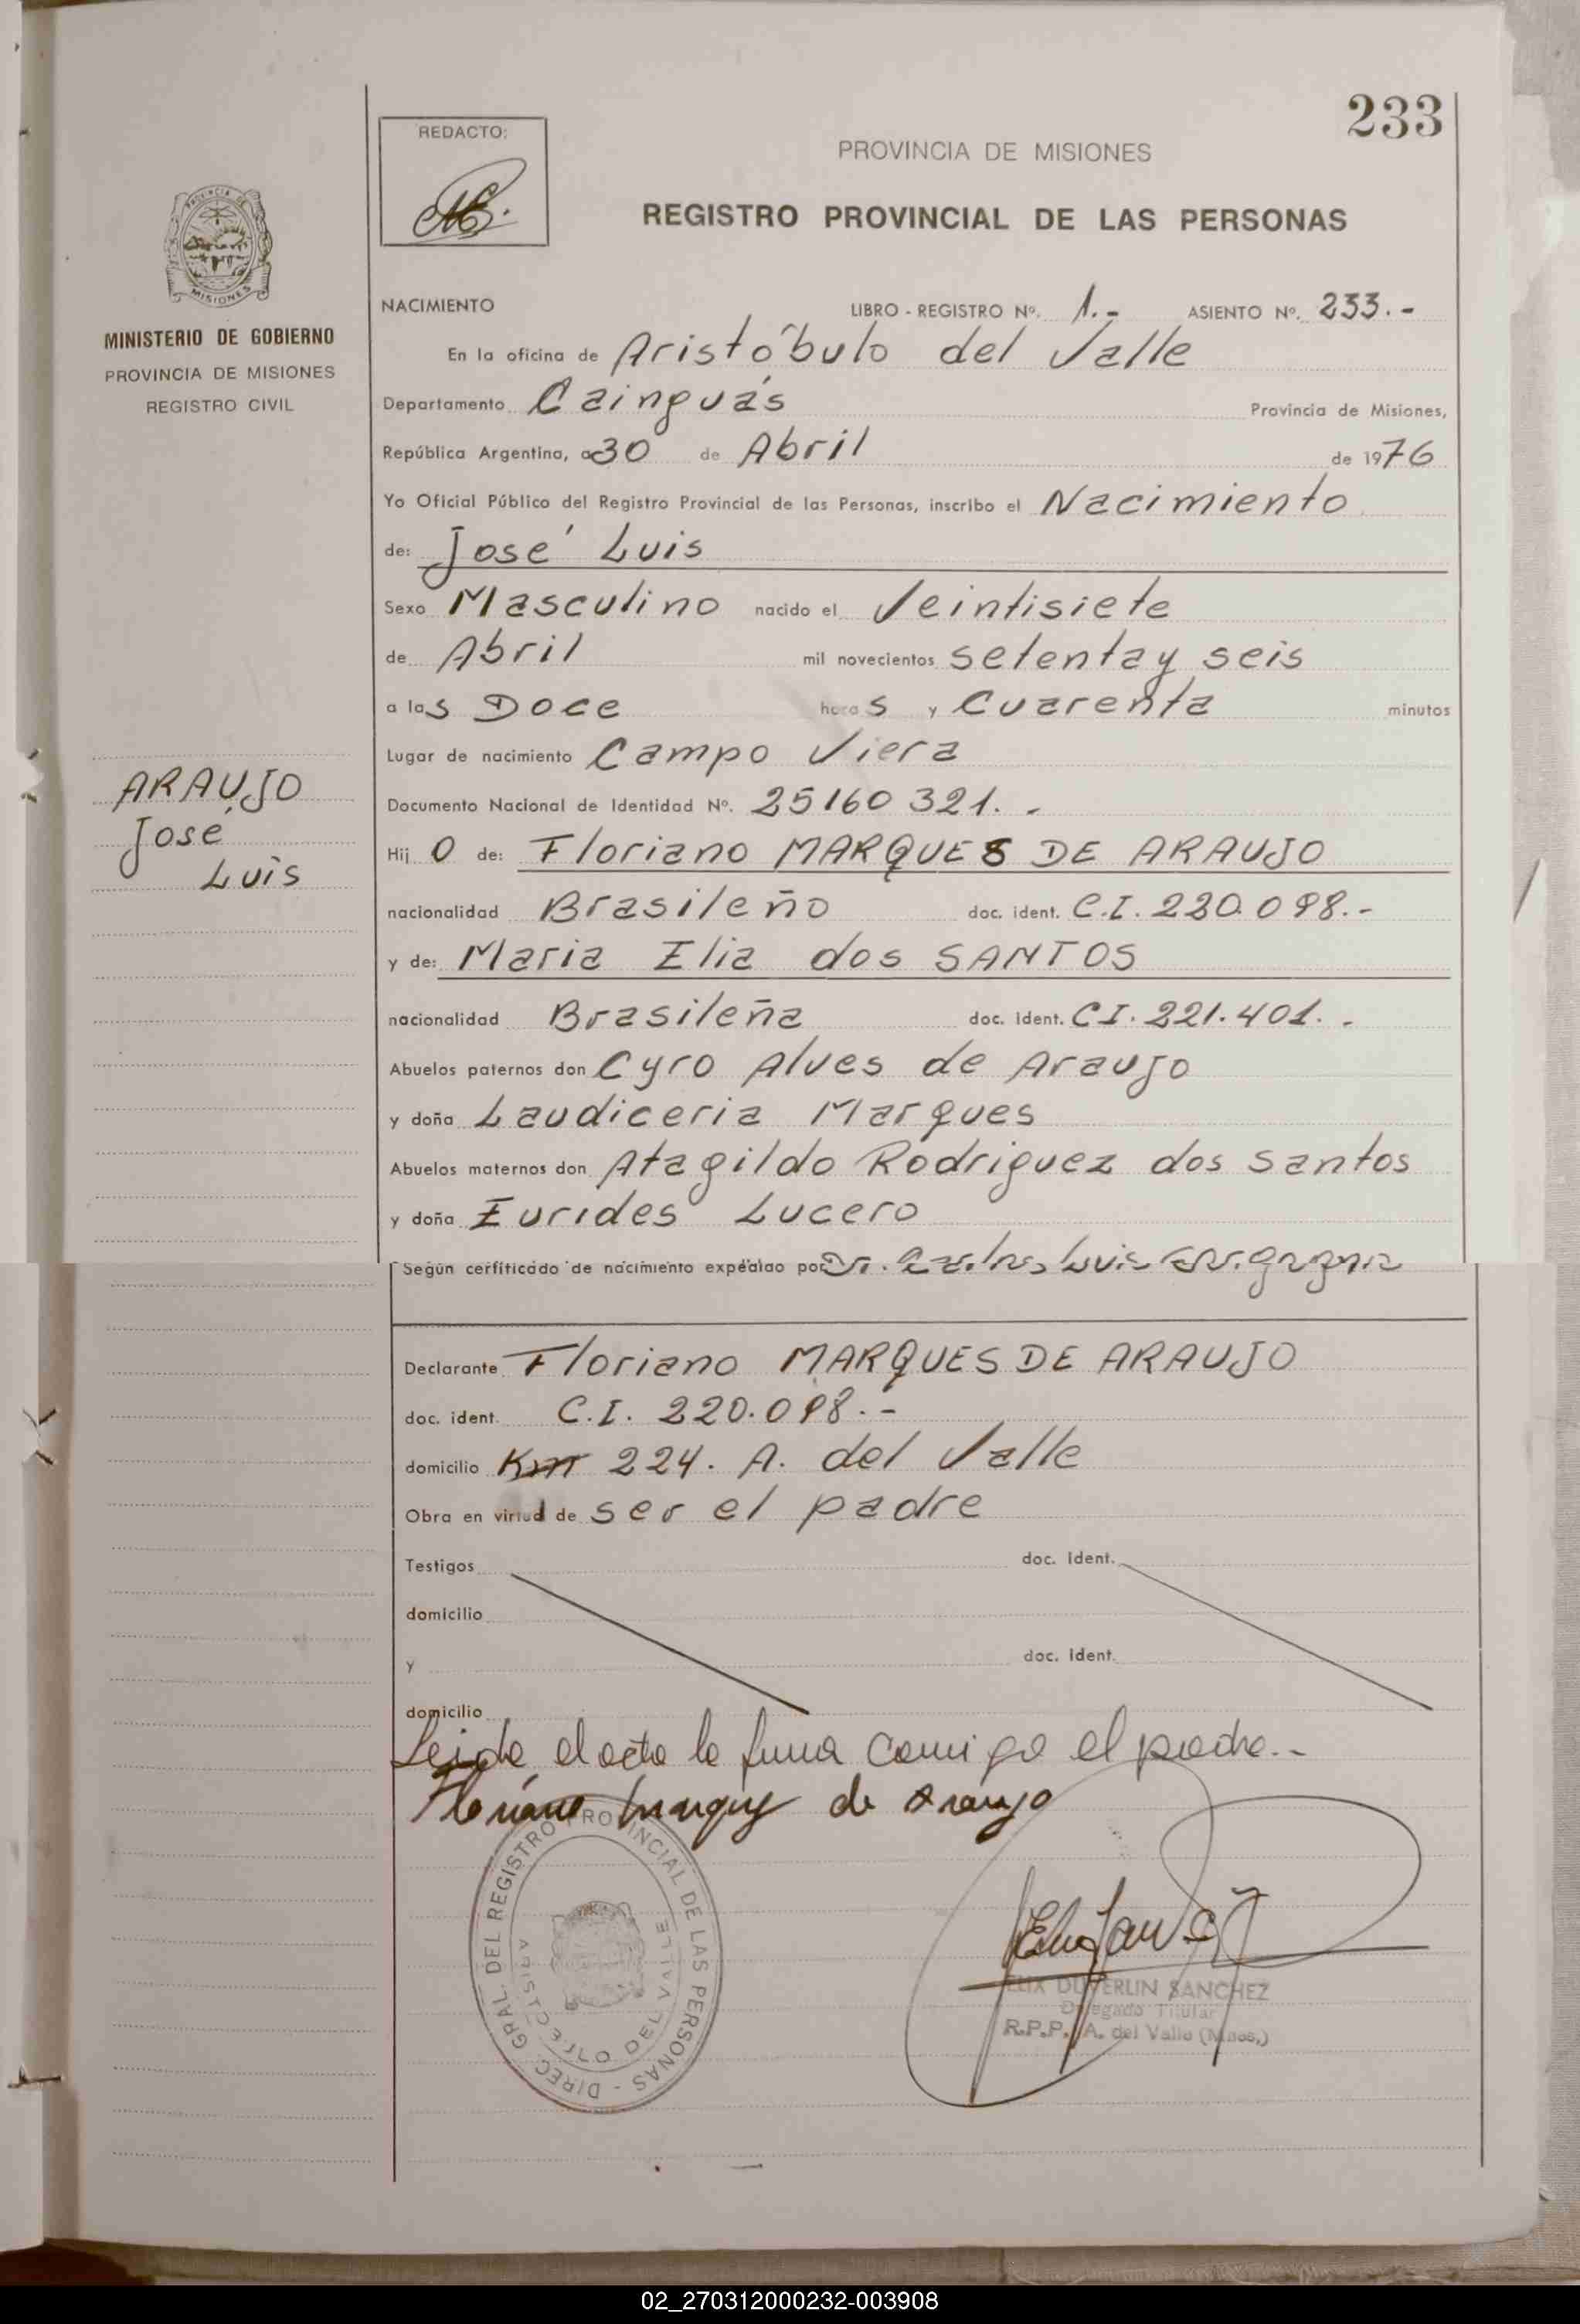 233
REDACTO:
PROVINCIA DE MISIONES
REGISTRO PROVINCIAL DE LAS PERSONAS
PROVINCIA DE
MISIONES
MINISTERIO DE GOBIERNO
PROVINCIA DE MISIONES
REGISTRO CIVIL
NACIMIENTO LIBRO - REGISTRO Nº. 1.- ASIENTO Nº. 233.-
En la oficina de Aristóbulo del Valle
Departamento Cainguás Provincia de Misiones,
República Argentina, a 30 de Abril de 1976
Yo Oficial Público del Registro Provincial de las Personas, inscribo el Nacimiento
de: José Luis
Sexo Masculino nacido el Veintisiete
de Abril mil novecientos setenta y seis
a las Doce horas y Cuarenta minutos
Lugar de nacimiento Campo Viera
ARAUJO
José
Luis
Documento Nacional de Identidad Nº. 25160321.-
Hijo de: Floriano MARQUES DE ARAUJO
nacionalidad Brasileño doc. ident. C.I. 220.098.-
y de: Maria Elia dos SANTOS
nacionalidad Brasileña doc. ident. CI. 221.401.-
Abuelos paternos don Cyro Alves de Araujo
y doña Laudiceria Marques
Abuelos maternos don Atagildo Rodriguez dos Santos
y doña Eurides Lucero
Según certificado de nacimiento expedido por Dr. Luis
Declarante Floriano MARQUES DE ARAUJO
doc. ident. C.I. 220.098.-
domicilio Km 224. A. del Valle
Obra en virtud de ser el padre
Testigos doc. ident.
domicilio
y doc. ident.
domicilio
Leida el acta la firma conmigo el padre.-
Floriano Marques de Araujo
DIREC. GRAL. DEL REGISTRO PROVINCIAL DE LAS PERSONAS -
DEL VALLE
SANCHEZ
Delegado Titular
R.P.P. A. del Valle (Mnes.)
02_270312000232-003908